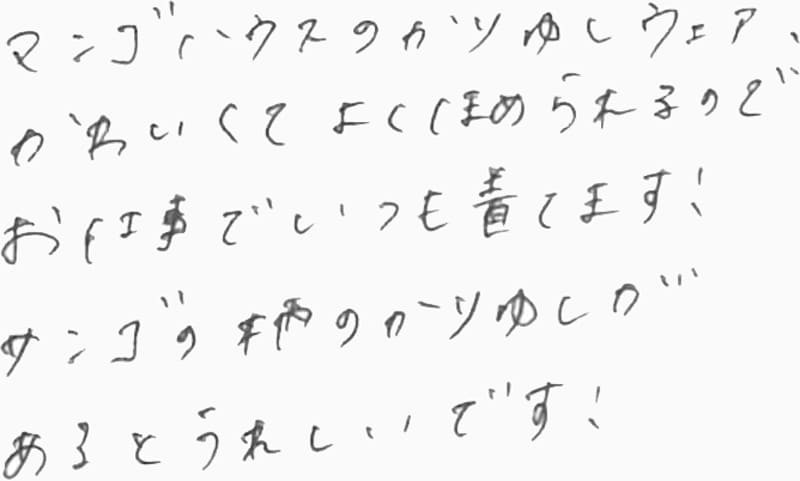 マンゴハウスのかりゆしウェア、
かわいくてよくほめられるので
お仕事でいつも着てます!
サンゴの柄のかりゆしが
あるとうれしいです!